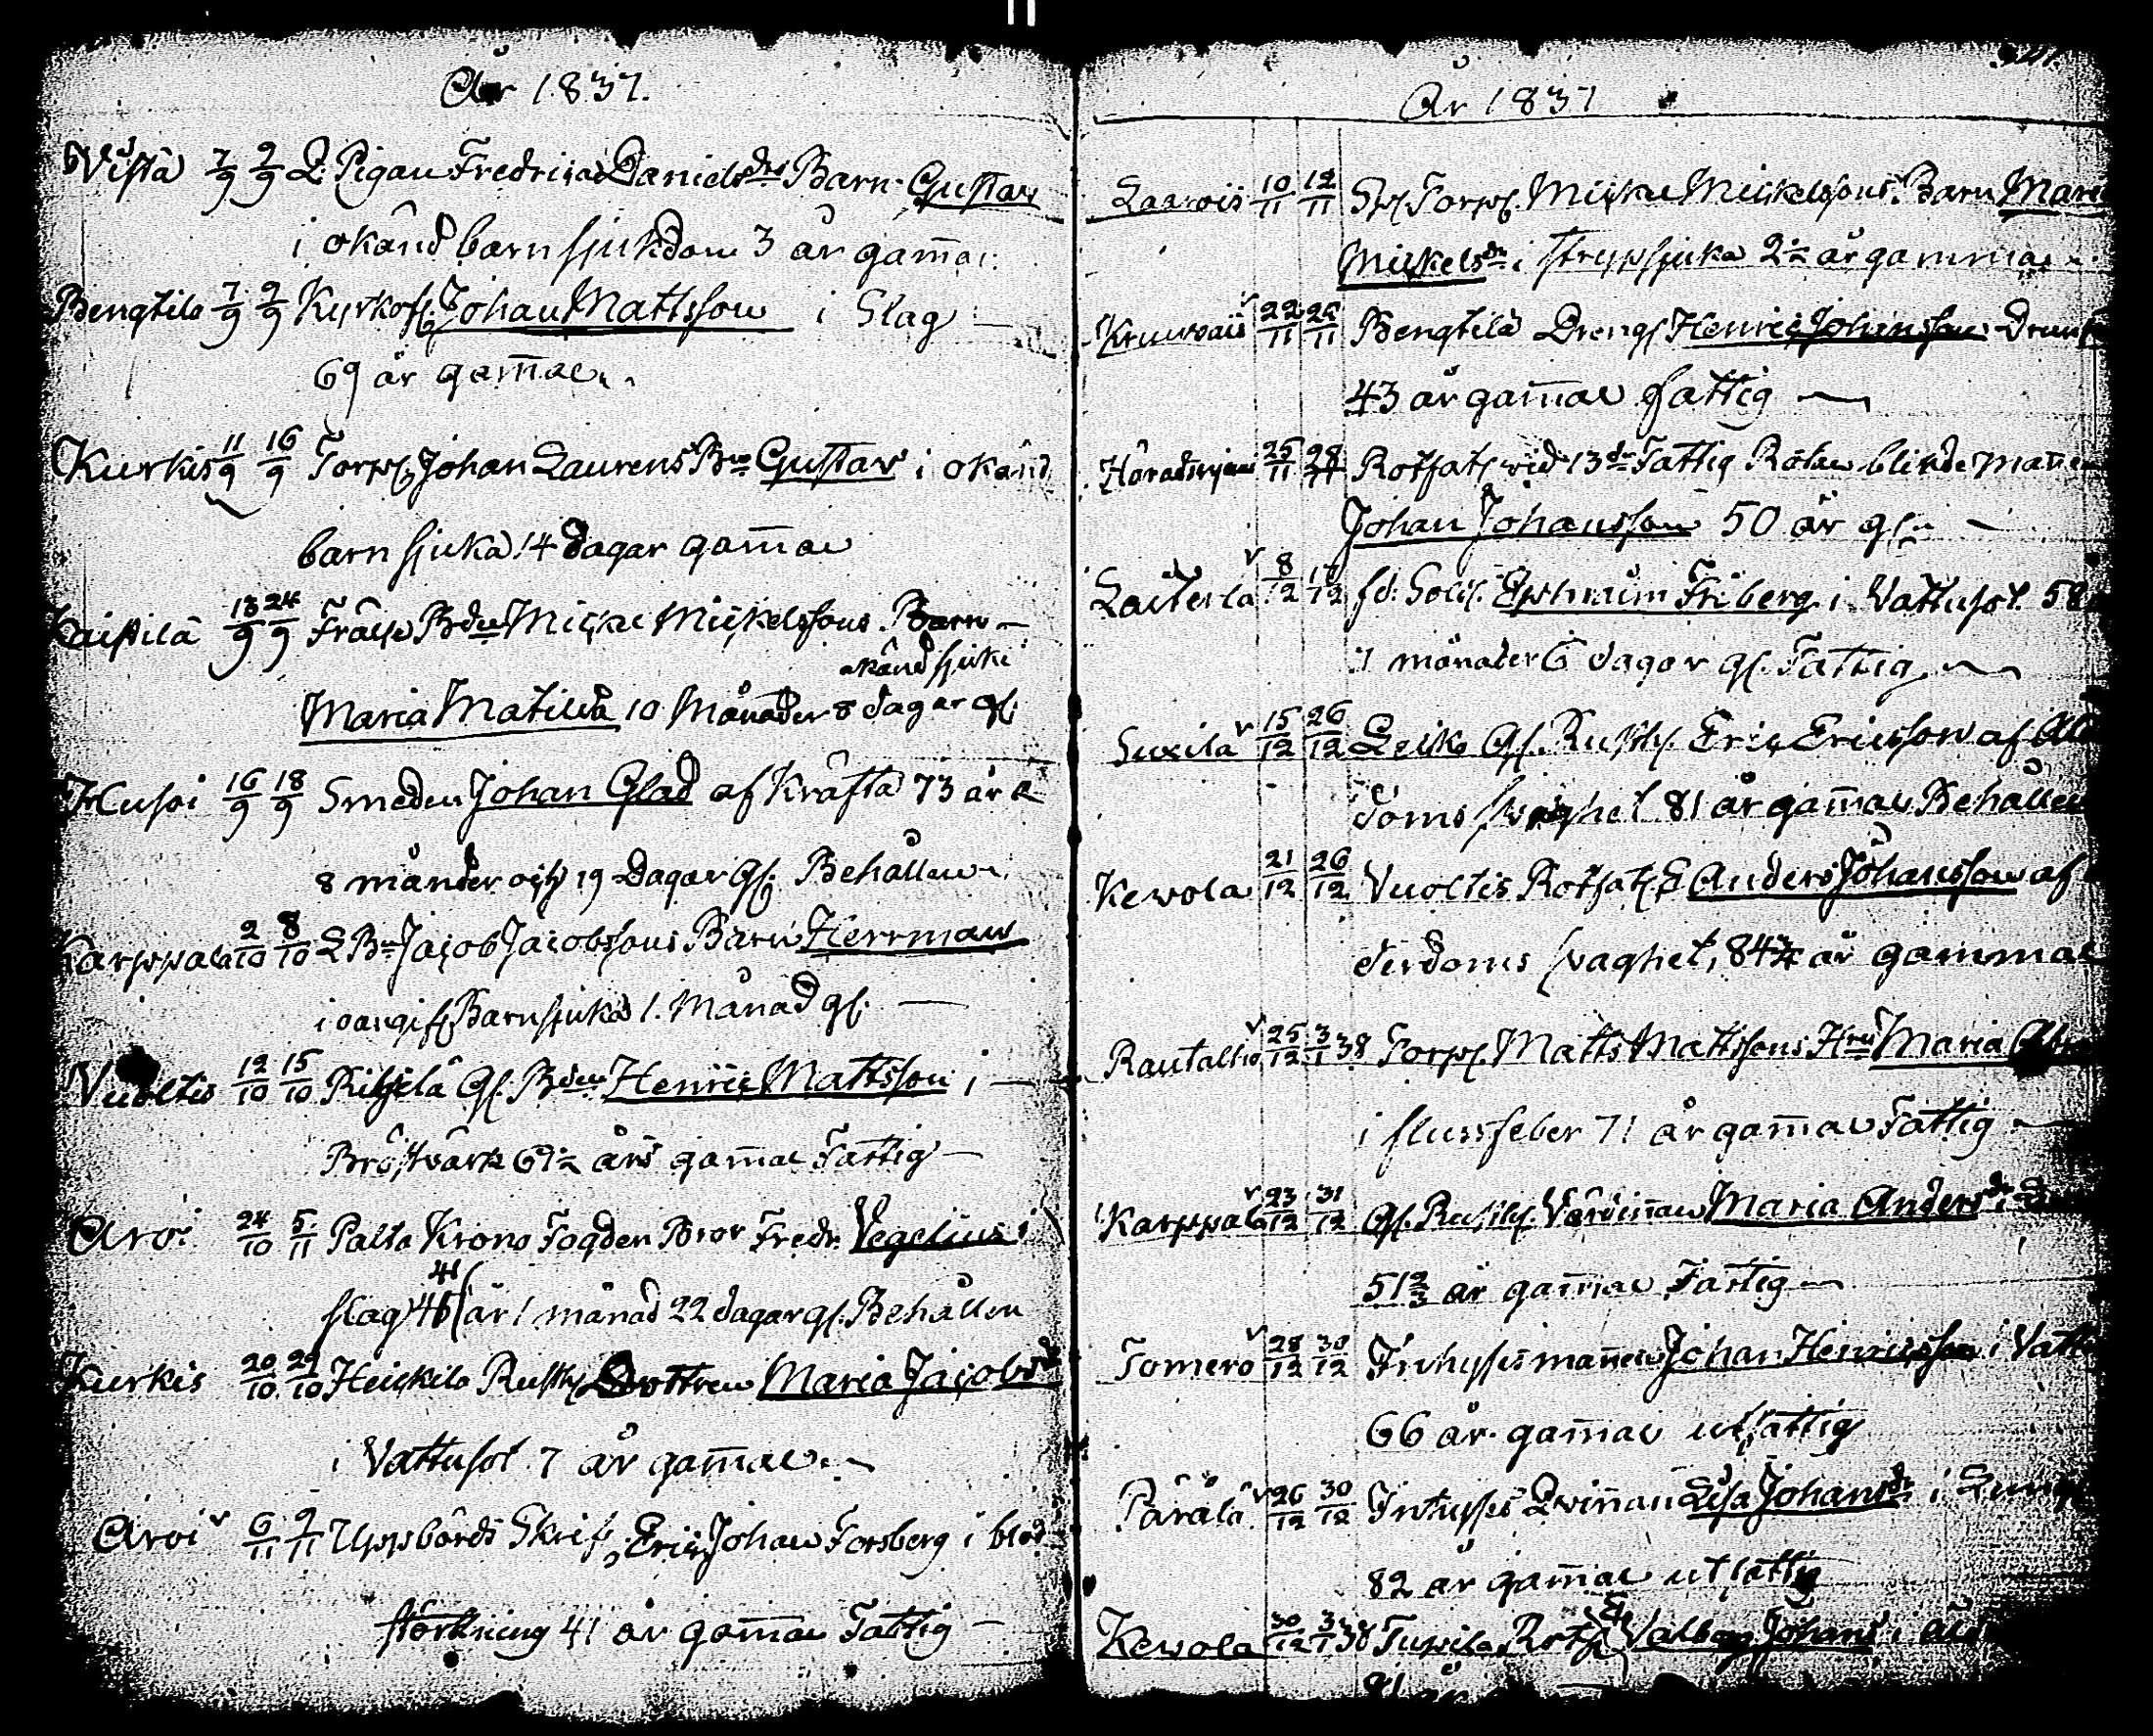 År 1837.
Vista 7/9 9/9 Q. Pigan Fredrica Danielsdrs Barn Gustav
i okänd barnsjukdom 3 år gam̄al
Bengtilä 7/9 9/9 Johan Mattsson i Slag
69 år gam̄al
Kurkis 11/9 16/9 Torp Johan Laurens Bn Gustav i okänd
barnsjuka 14 dagar gam̄al
18/9 24/9 Mickel Mickelssons Barn
okänd sjuka
Maria Matilda 10 Månader 8 dagar gl.
16/9 18/9 Smeden Johan Glad af Kräfta 73 år
8 månder och 19 Dagar gl. Behållen
Karppala 2/10 8/10 Jacob Jacobssons Barn Herrman
i oangif Barnsjuka 1. Månad gl.
Vuoltis 12/10 15/10 Gl. Bden Henric Mattsson i
Bröstvärk 69½ års gam̄al Fattig
Aroi 24/10 5/11 Palta Krono Fogden Bror Fredr. Vegelius i
slag 41 46 år 1 månad 22 dagar gl. Behållen
Kurkis 20/10 29/10 Heickilä Rusth Dottren Maria Jacobsdr
i Vattusot 7 år gam̄al
Aroi 6/11 9/11 Uppbörds Skrif. Eric Johan Forsberg i blod
störtning 41 år gam̄al Fattig
År 1837
10/11 12/11 Torp. Mickel Mickelssons Barn Mari
Mickelsdr i strypsjuka 2½ år gammal
22/11 26/11 Bengtilä Dreng Henric Johansson
43 år gam̄al fattig
25/11 28/11 Rotfat wid 13de Fattig Roten blinde man̄en
Johan Johansson 50 år gl.
8/12 fd. Sold. Ephraim Friberg i Vattusot 58
7 månader 6 dagar gl. Fattig
Suxila 15/12 26/12 Gl. Rusth. Eric Ericsson af Ål
doms svaghet 81 år gam̄al Behållen
Kewola 21/12 26/12 Vuoltis Rotfat. E Anders Johansson af
derdoms svaghet, 84¾ år gammal
25/12 3/1 38 Torp. Matts Mattssons Hru Maria
i flussfeber 71 år gam̄al Fattig
Karppala 23/12 31/12 Gl. Rusth. Värdin̄an Maria Anders
51⅔ år gam̄al Fattig
Tomero 28/12 30/12 Inhysesman̄en Johan Henricsson i Vatt
66 år gam̄al utfattig
Pärälä 26/12 30/12 Inhyses Qvin̄an Lisa Johansdr i
82 år gam̄al utfattig
Kewola 30/12 3/1 38 Valborg Johans i